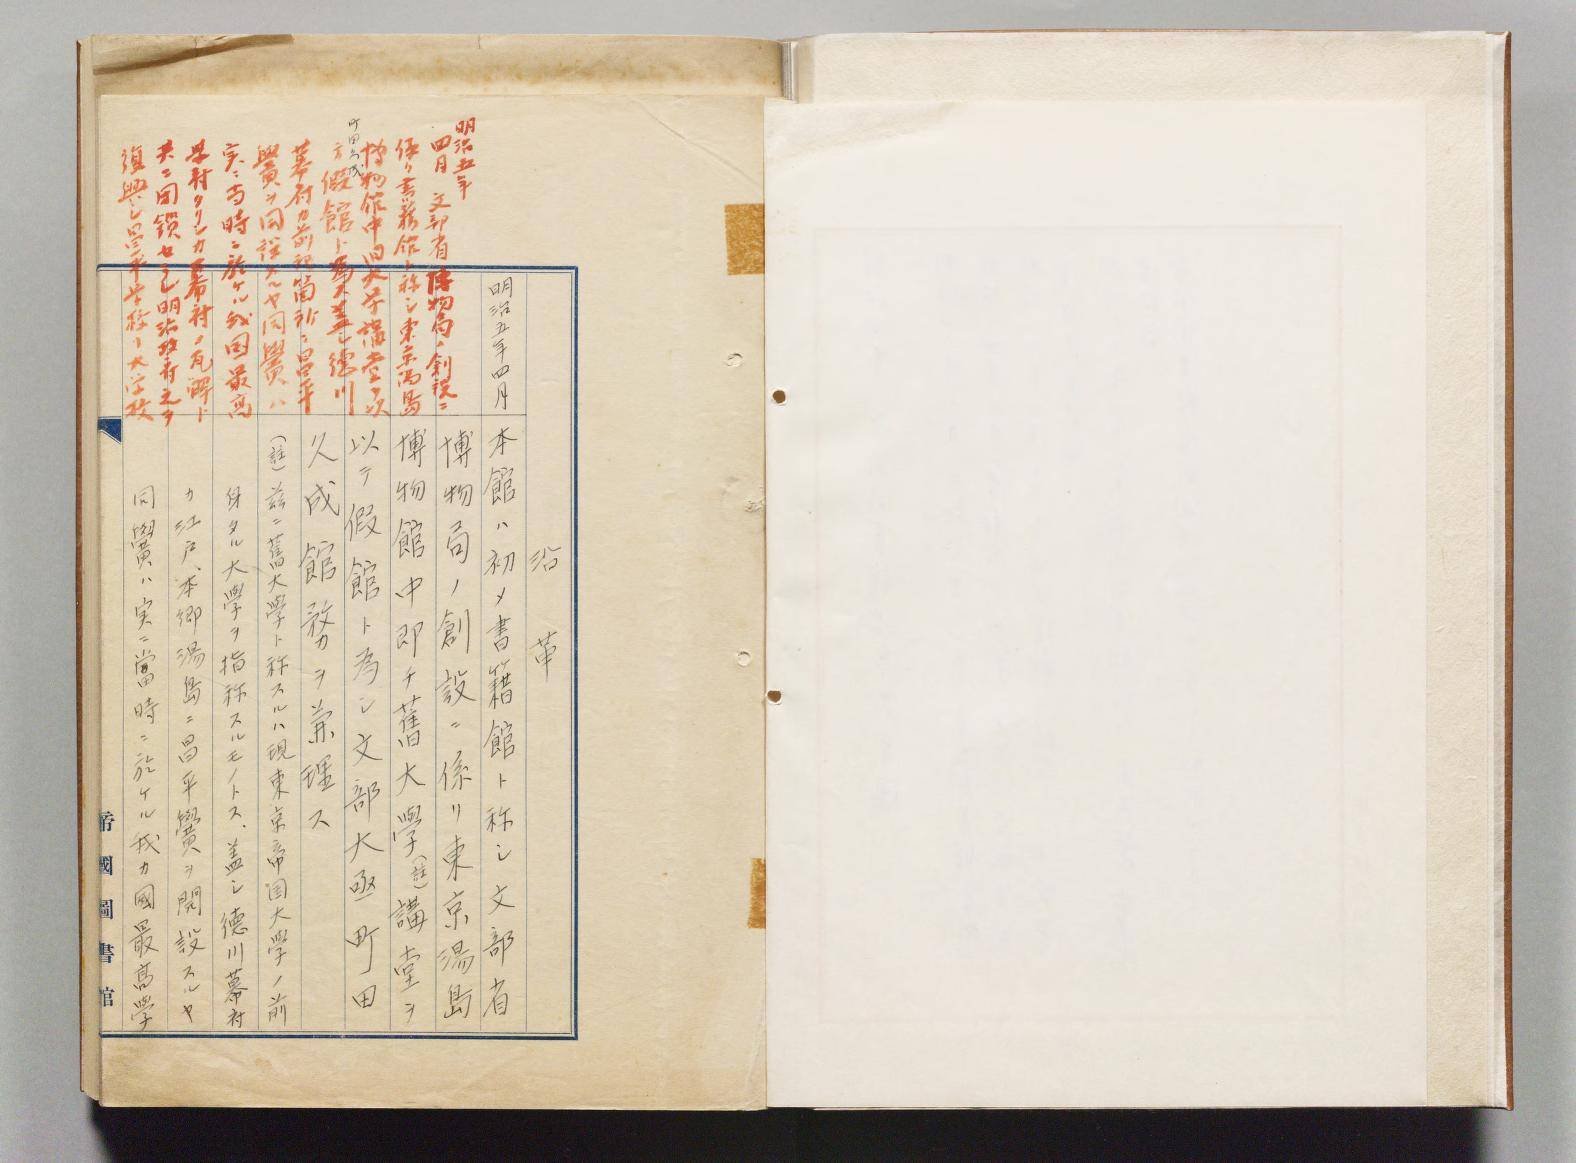 沿革
明治五年四月
本館ハ初メ書籍館ト称シ文部省
博物局ノ創設ニ係リ東京湯島
博物館中即チ舊大學(註)講堂ヲ
以テ假館ト為シ文部大丞町田
久成館務ヲ兼理ス
(註)茲ニ舊大學ト称スルハ現東京帝国大學ノ前
身タル大學ヲ指称スルモノトス、蓋シ徳川幕府
カ江戸、本郷湯島ニ昌平黌ヲ開設スルヤ
同黌ハ実ニ當時ニ於ケル我カ國最高學
明治五年
四月 文部省博物局ノ創設ニ
係リ書籍館ト称シ東京湯島
博物館中旧大学講堂ヲ以
テ假館ト為ス蓋シ徳川
町田久成
幕府カ前記箇所ニ昌平
黌ヲ開設スルヤ同黌ハ
実ニ当時ニ於ケル我国最高
学府タリシカ幕府ノ瓦解ト
共ニ閉鎖セラレ明治政府之ヲ
復興シ昌平学校ー大学校
帝國圖書館